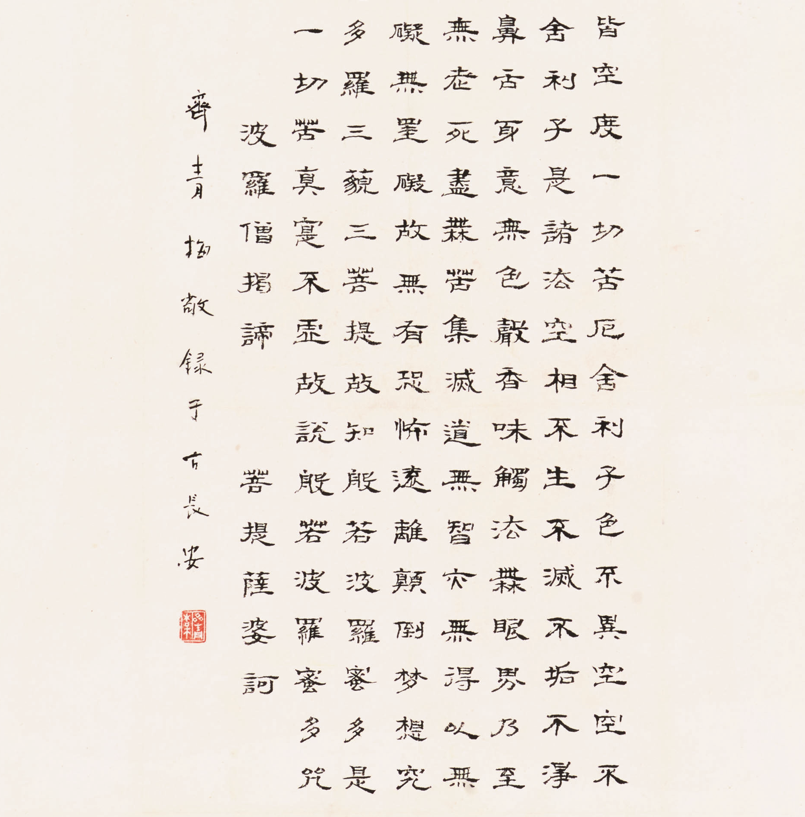 皆空度一切苦厄舍利子色不異空空不
舍利子是諸法空相不生不滅不垢不淨
鼻舌身意無色聲香味觸法無眼界乃至
無老死盡無苦集滅道無智亦無得以無
礙無罣礙故無有恐怖遠離顛倒梦想究
多羅三藐三菩提故知般若波羅蜜多是
一切苦真寔不虛故說般若波羅蜜多咒
波羅僧揭諦 菩提薩婆訶
齊青梅敬録于古長安